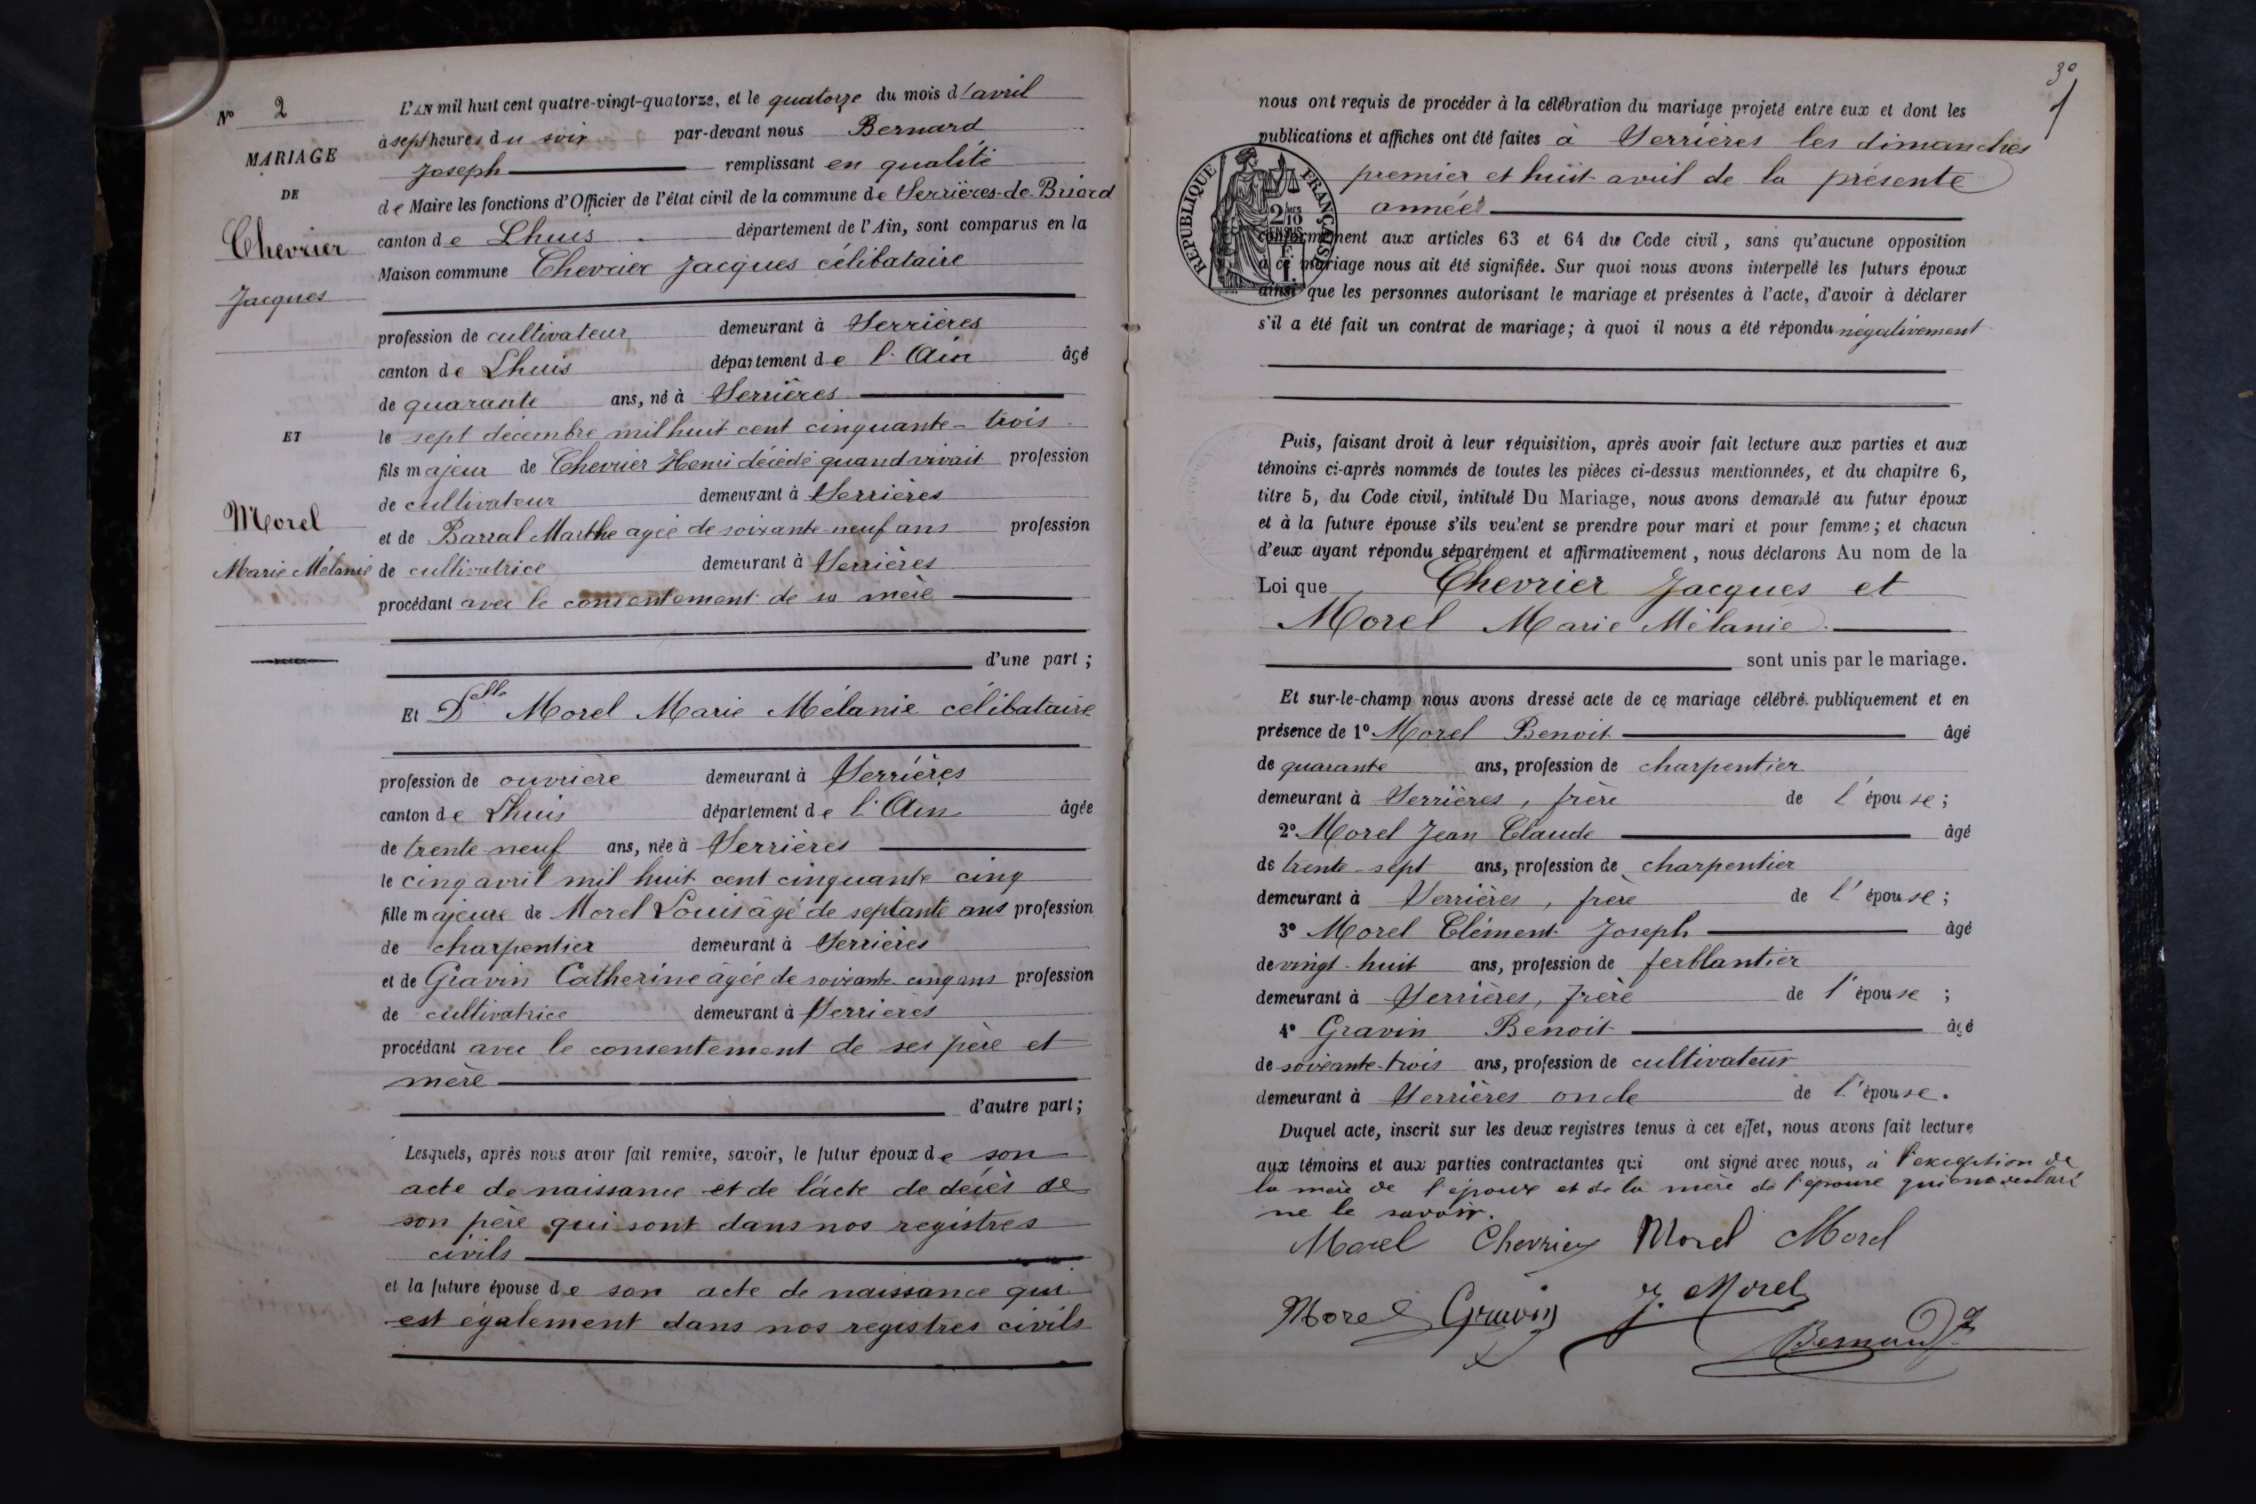 Nº 2
MARIAGE
DE
Chevrier
Jacques
ET
Morel
Marie Mélanie
L'AN mil huit cent quatre-vingt-quatorze, et le quatorze du mois d'avril
à sept heures du soir par-devant nous Bernard
Joseph remplissant en qualité
de Maire les fonctions d'Officier de l'état civil de la commune de Serrières-de-Briord
canton de Lhuis département de l'Ain, sont comparus en la
Maison commune Chevrier Jacques célibataire
profession de cultivateur demeurant à Serrières
canton de Lhuis département de l'Ain âgé
de quarante ans, né à Serrières
le sept décembre mil huit cent cinquante-trois
fils majeur de Chevrier Henri décédé quand vivait profession
de cultivateur demeurant à Serrières
et de Barral Marthe agée de soixante neuf ans profession
de cultivatrice demeurant à Serrières
procédant avec le consentement de sa mère
d'une part ;
Et Dlle Morel Marie Mélanie célibataire
profession de ouvrière demeurant à Serrières
canton de Lhuis département de l'Ain âgée
de trente neuf ans, née à Serrières
le cinq avril mil huit cent cinquante cinq
fille majeure de Morel Louis âgé de septante ans profession
de charpentier demeurant à Serrières
et de Gravin Catherine âgée de soixante cinq ans profession
de cultivatrice demeurant à Serrières
procédant avec le consentement de ses père et
mère
d'autre part ;
Lesquels, après nous avoir fait remise, savoir, le futur époux de son
acte de naissance et de l'acte de décès de
son père qui sont dans nos registres
civils
et la future épouse de son acte de naissance qui
est également dans nos registres civils
30
nous ont requis de procéder à la célébration du mariage projeté entre eux et dont les
publications et affiches ont été faites à Serrières les dimanches
premier et huit avril de la présente
année
RÉPUBLIQUE FRANÇAISE
2/10
conformément aux articles 63 et 64 du Code civil, sans qu'aucune opposition
à ce mariage nous ait été signifiée. Sur quoi nous avons interpellé les futurs époux
ainsi que les personnes autorisant le mariage et présentes à l'acte, d'avoir à déclarer
s'il a été fait un contrat de mariage; à quoi il nous a été répondu négativement
Puis, faisant droit à leur réquisition, après avoir fait lecture aux parties et aux
témoins ci-après nommés de toutes les pièces ci-dessus mentionnées, et du chapitre 6,
titre 5, du Code civil, intitulé Du Mariage, nous avons demandé au futur époux
et à la future épouse s'ils veulent se prendre pour mari et pour femme; et chacun
d'eux ayant répondu séparément et affirmativement, nous déclarons Au nom de la
Loi que Chevrier Jacques et
Morel Marie Mélanie
sont unis par le mariage.
Et sur-le-champ nous avons dressé acte de ce mariage célébré publiquement et en
présence de 1º Morel Benoit âgé
de quarante ans, profession de charpentier
demeurant à Serrières, frère de l'épouse ;
2º Morel Jean Claude âgé
de trente-sept ans, profession de charpentier
demeurant à Serrières, frère de l'épouse ;
3º Morel Clément Joseph âgé
de vingt-huit ans, profession de ferblantier
demeurant à Serrières, frère de l'épouse ;
4º Gravin Benoit âgé
de soixante-trois ans, profession de cultivateur
demeurant à Serrières oncle de l'épouse.
Duquel acte, inscrit sur les deux registres tenus à cet effet, nous avons fait lecture
aux témoins et aux parties contractantes qui ont signé avec nous, à l'exception de
la mère de l'époux et de la mère de l'épouse qui ont déclaré
ne le savoir.
Morel Chevrier Morel Morel
Morel Gravin J. Morel
Bernard J.